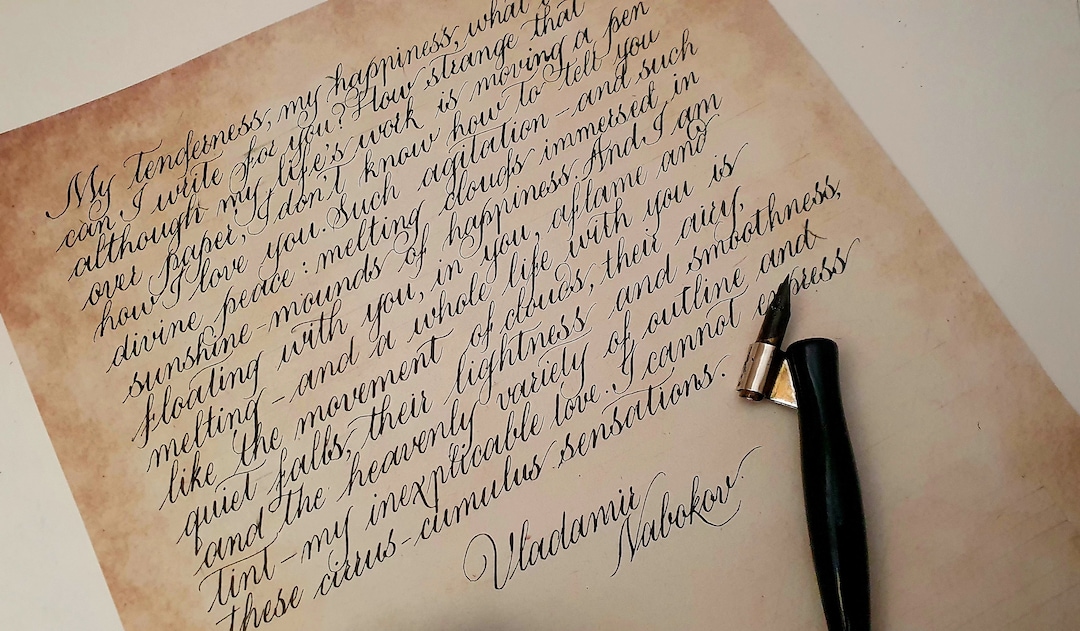 My Tenderness, my happiness, what
can I write for you? How strange that
although my life's work is moving a pen
over paper, I don't know how to tell you
how I love you. Such agitation - and such
divine peace: melting clouds immersed in
sunshine - mounds of happiness. And I am
floating with you, in you, aflame and
melting - and a whole life with you is
like the movement of clouds, their airy,
quiet falls, their lightness and smoothness,
and the heavenly variety of outline and
tint - my inexplicable love. I cannot express
these cirrus-cumulus sensations.
Vladamir
Nabokov